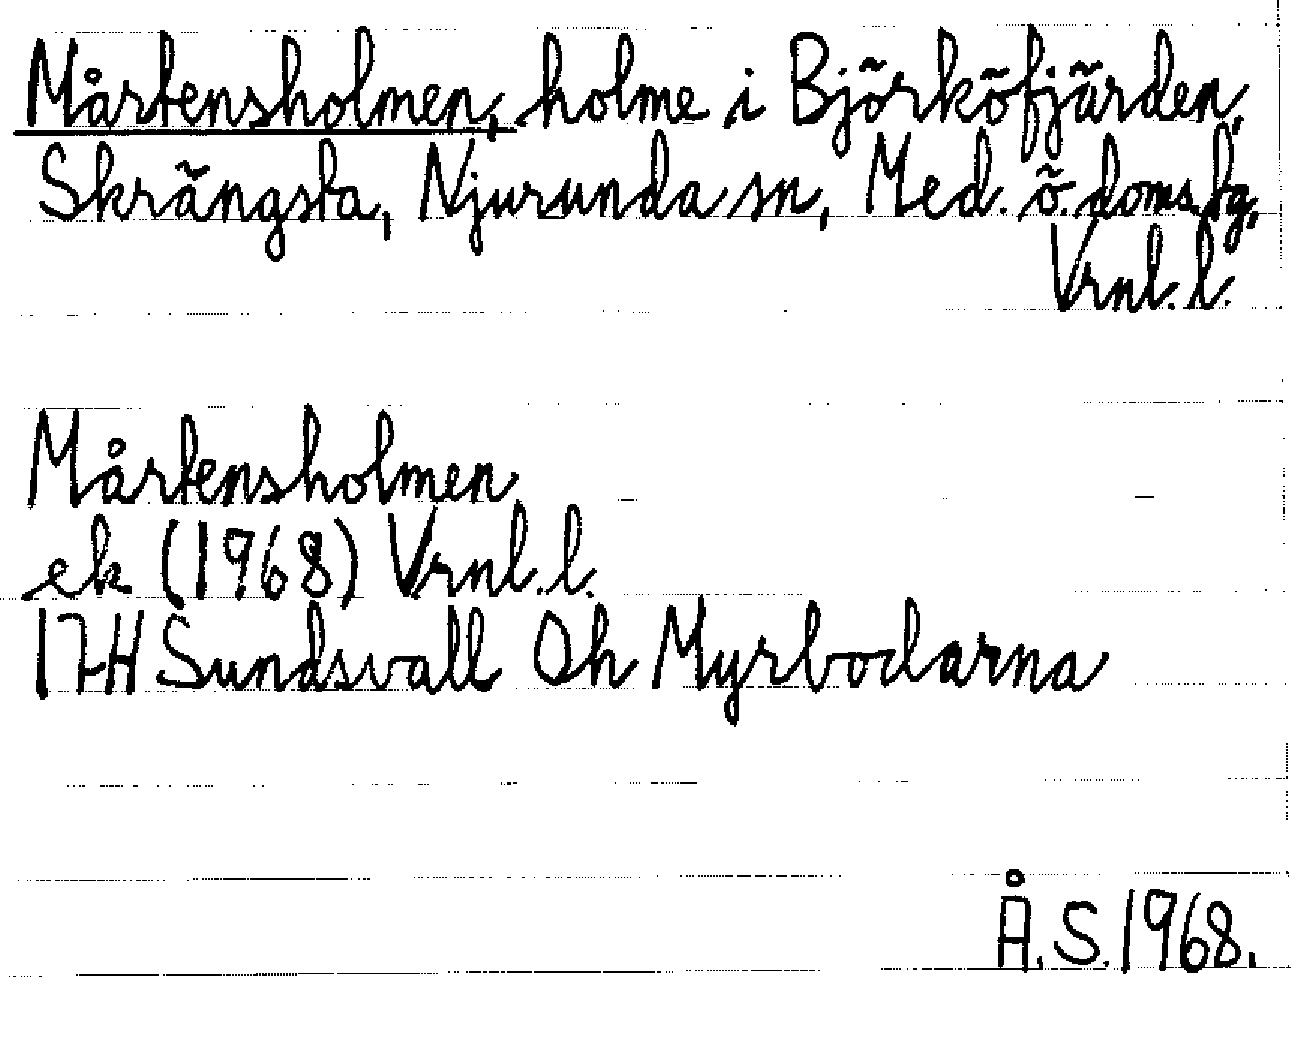 Mårtensholmen, holme i Björköfjärden,
Skrängsta, Njurunda sn, Med. ö. doms. fg,
Vrnl. l.
Mårtensholmen
ek (1968) Vrnl. l.
17H Sundsvall Oh Myrbodarna
Å.S. 1968.